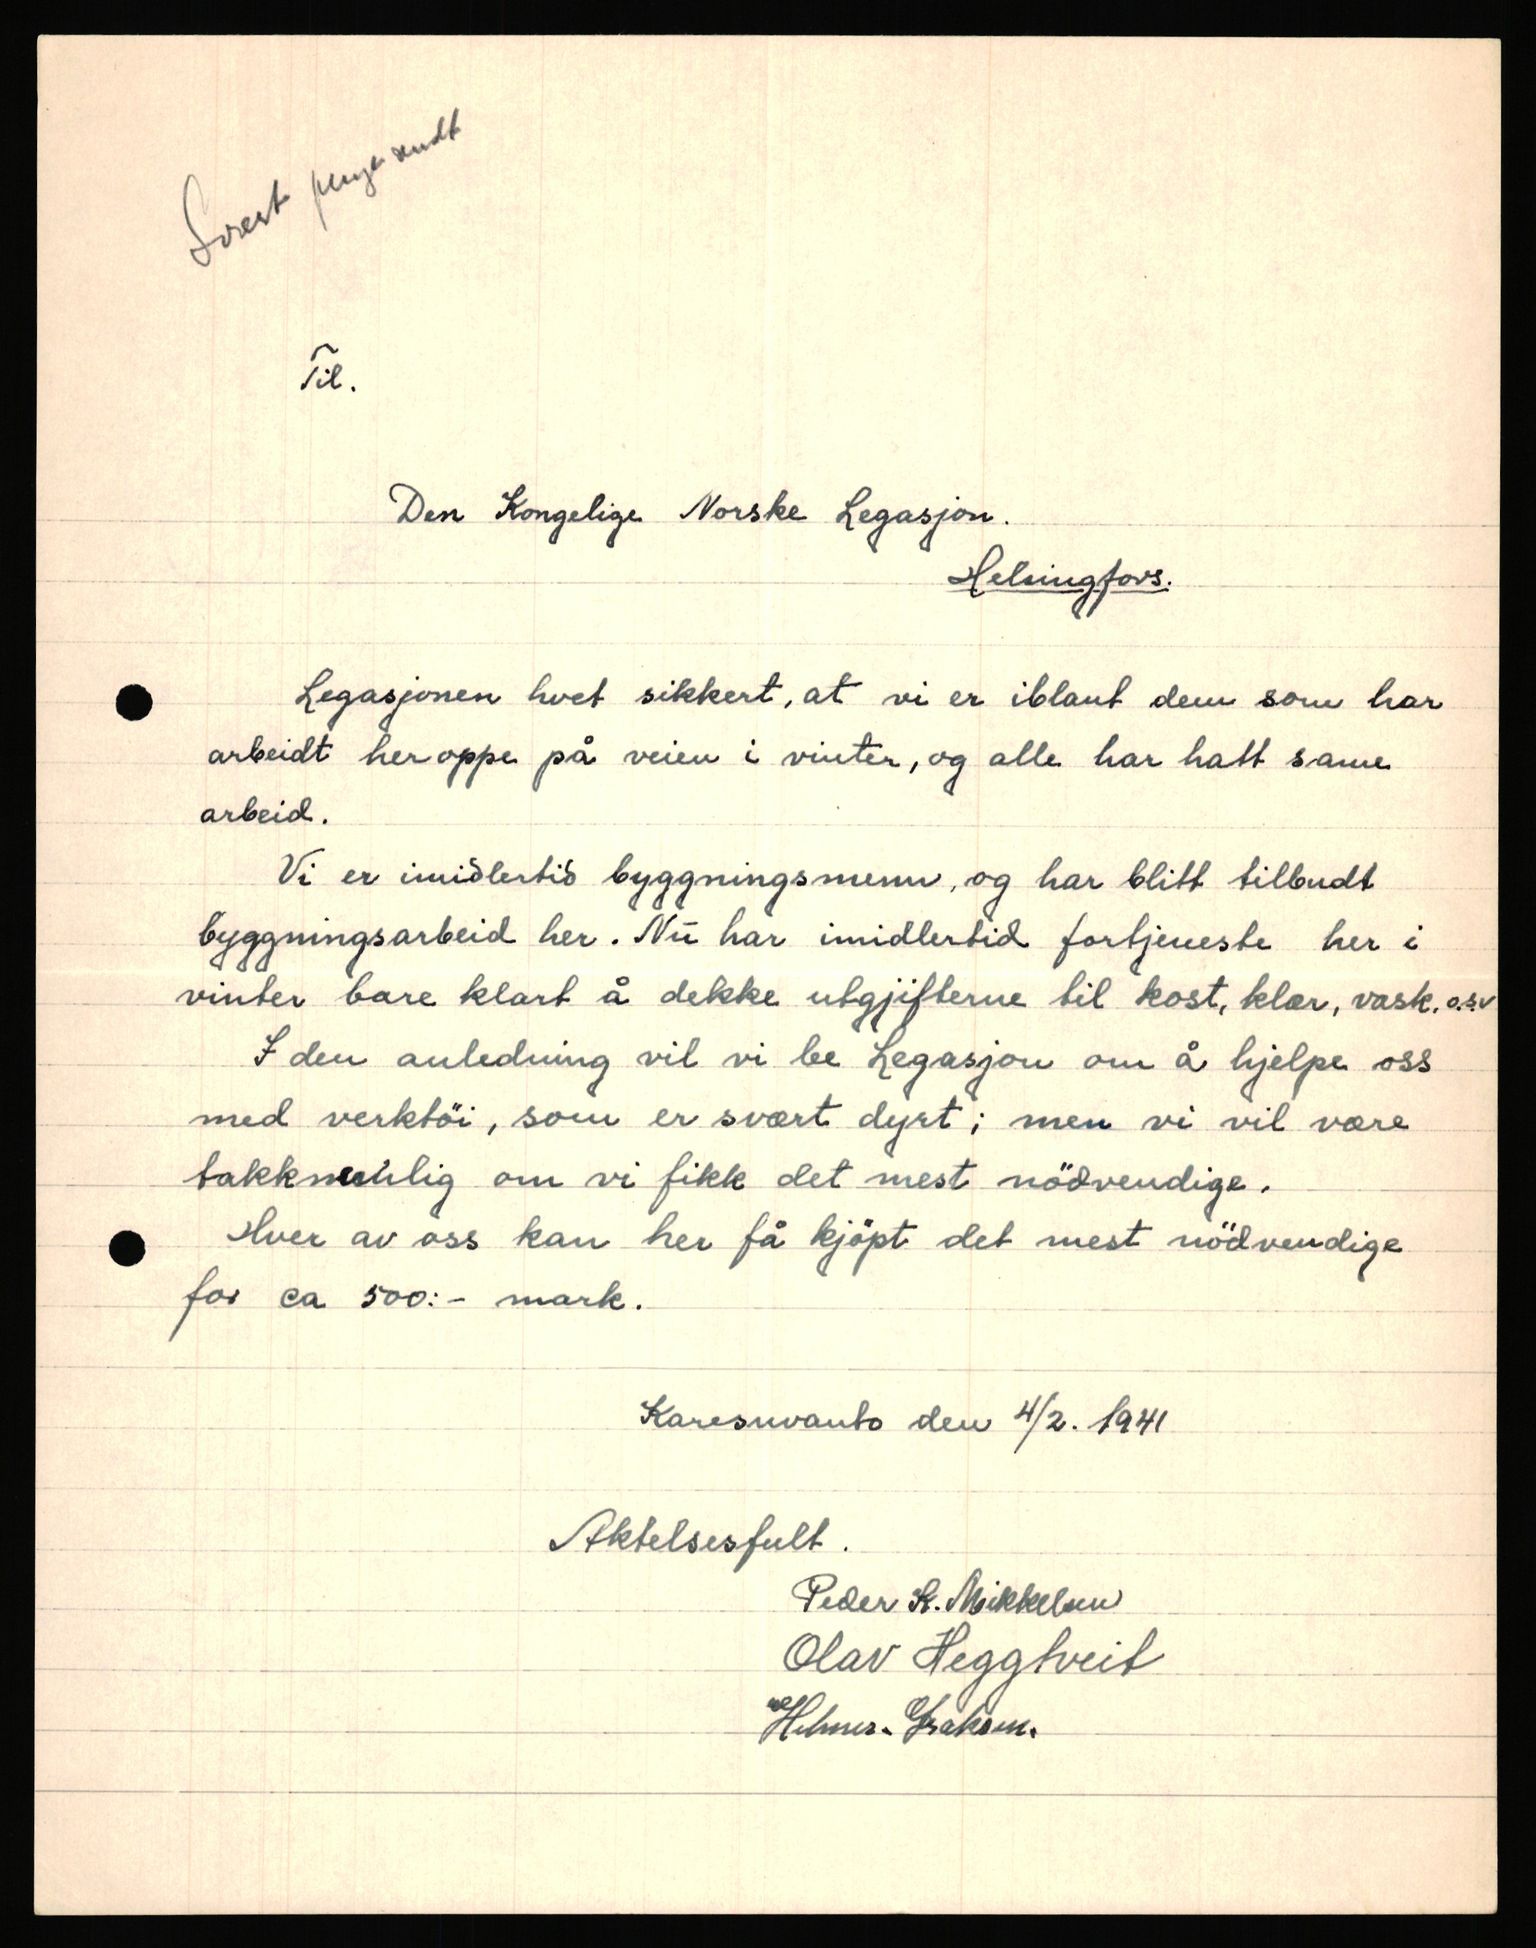 Svart penger sendt
Til.
Den Kongelige Norske Legasjon.
Helsingfors.
Legasjonen hvet sikkert, at vi er iblant dem som har
arbeidt her oppe på veien i vinter, og alle har hatt same
arbeid.
Vi er imidlertid byggningsmenn, og har blitt tilbudt
byggningsarbeid her. Nu har imidlertid fortjeneste her i
vinter bare klart å dekke utgjifterne til kost, klær, vask. o.s.v
I den anledning vil vi be Legasjon om å hjelpe oss
med verktöi, som er svært dyrt; men vi vil være
takknemlig om vi fikk det mest nödvendige.
Hver av oss kan her få kjöpt det mest nödvendige
for ca 500:- mark.
Karesuvanto den 4/2. 1941
Aktelsesfult.
Peder K. Mikkelsen
Olav Heggtveit
Hilmer. Isaksen.